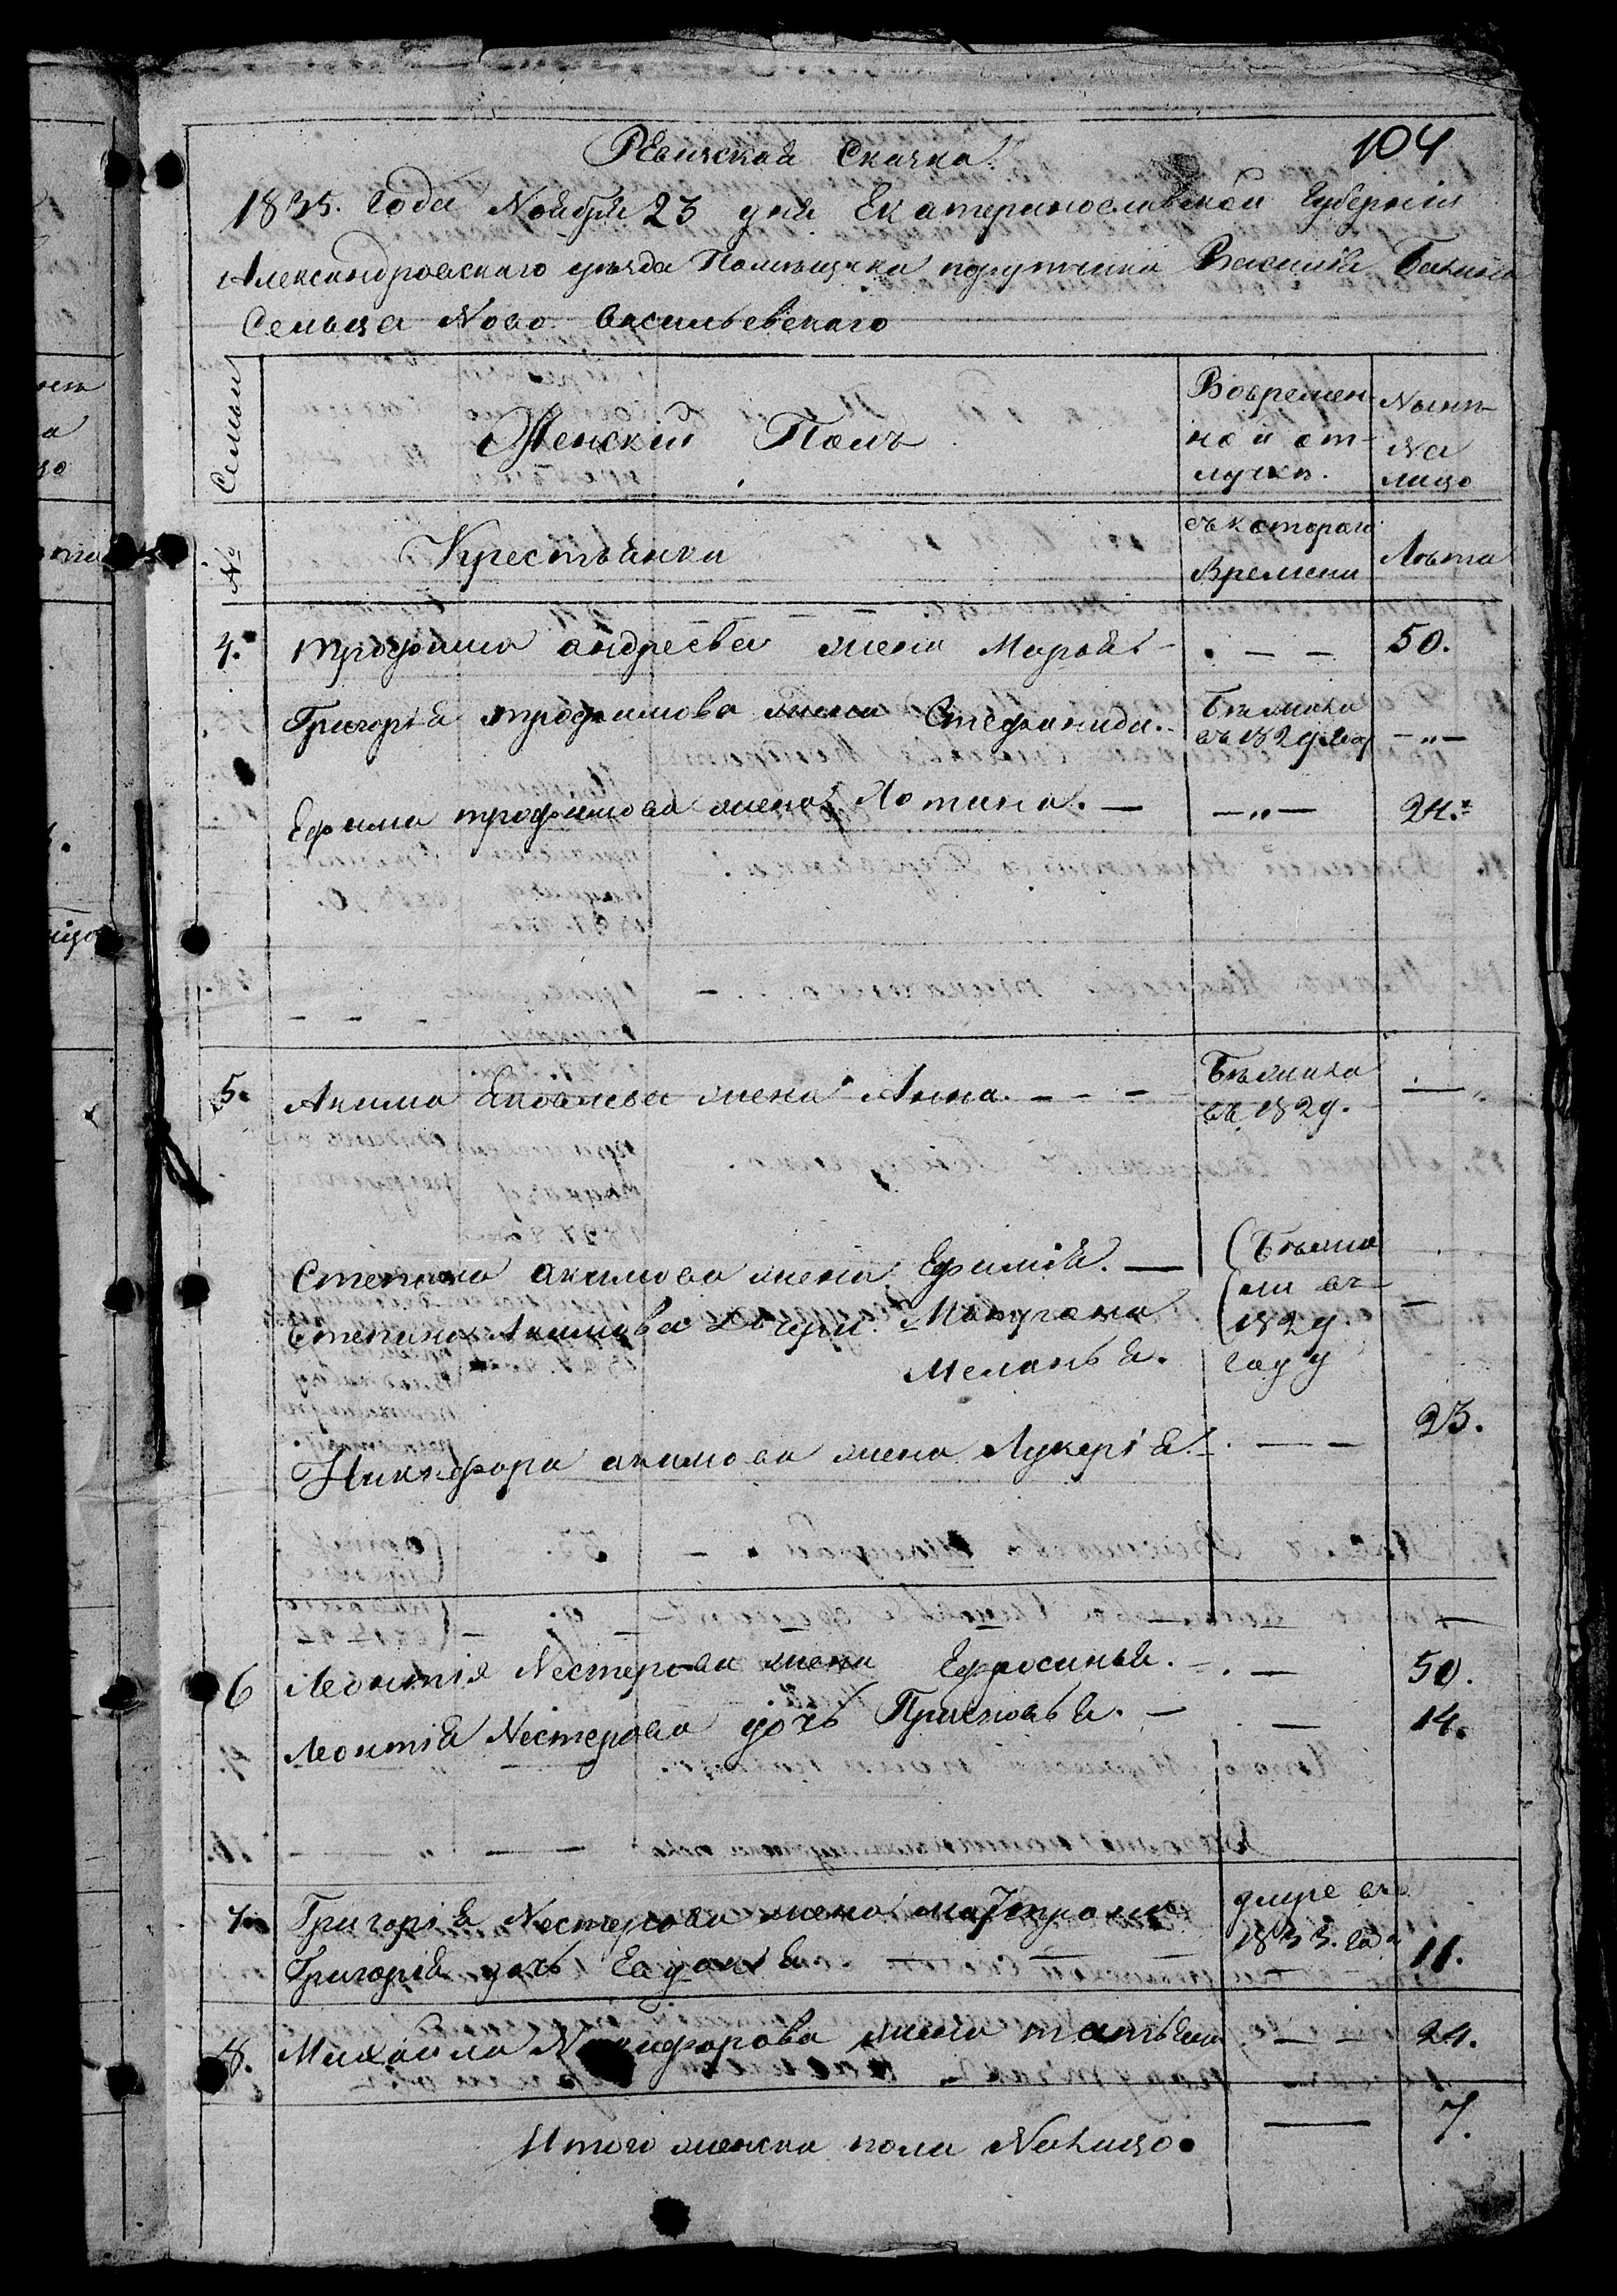 Ревижская Скаска.
104
1835. года Ноября 23 дня Екатеринославской Губернии
Александровскаго уезда Помещика поручика Василия
Сельца Ново Васильевскаго
Семьи
Женский Полъ
Вовремен-
но й от-
лучке.
Ныне
На
лицо
№
Крестьянка
съ котораго
Времени
Лета
4.
трофима андреева жена Марья - . - - 50.
Григория трофимова жена Стефанида. -
Бежала
въ 1829 году
- „ -
Ефима трофимова жена — - „ - 24.
5. Акима жена Анна. - - -
Бежала
въ 1829.
Степана акимова жена Ефимия. —
Степана Акимова дочери
Меланья.
(Бежа
(ли въ
1829
году
—
Никифора акимова жена Лукерія . — - 23.
6 Леонтія Нестерова жена Ефросинья. - . — 50.
Леонтія Нестерова дочь Прасковья. - . — 14.
7. Григорія Нестерова жена матрона
умре въ
1833. году
Григорія дочь Евдокія — 11.
8. Михайла Никифорова жена татьяна — - 24.
Итого женска пола Налицо. — 7.